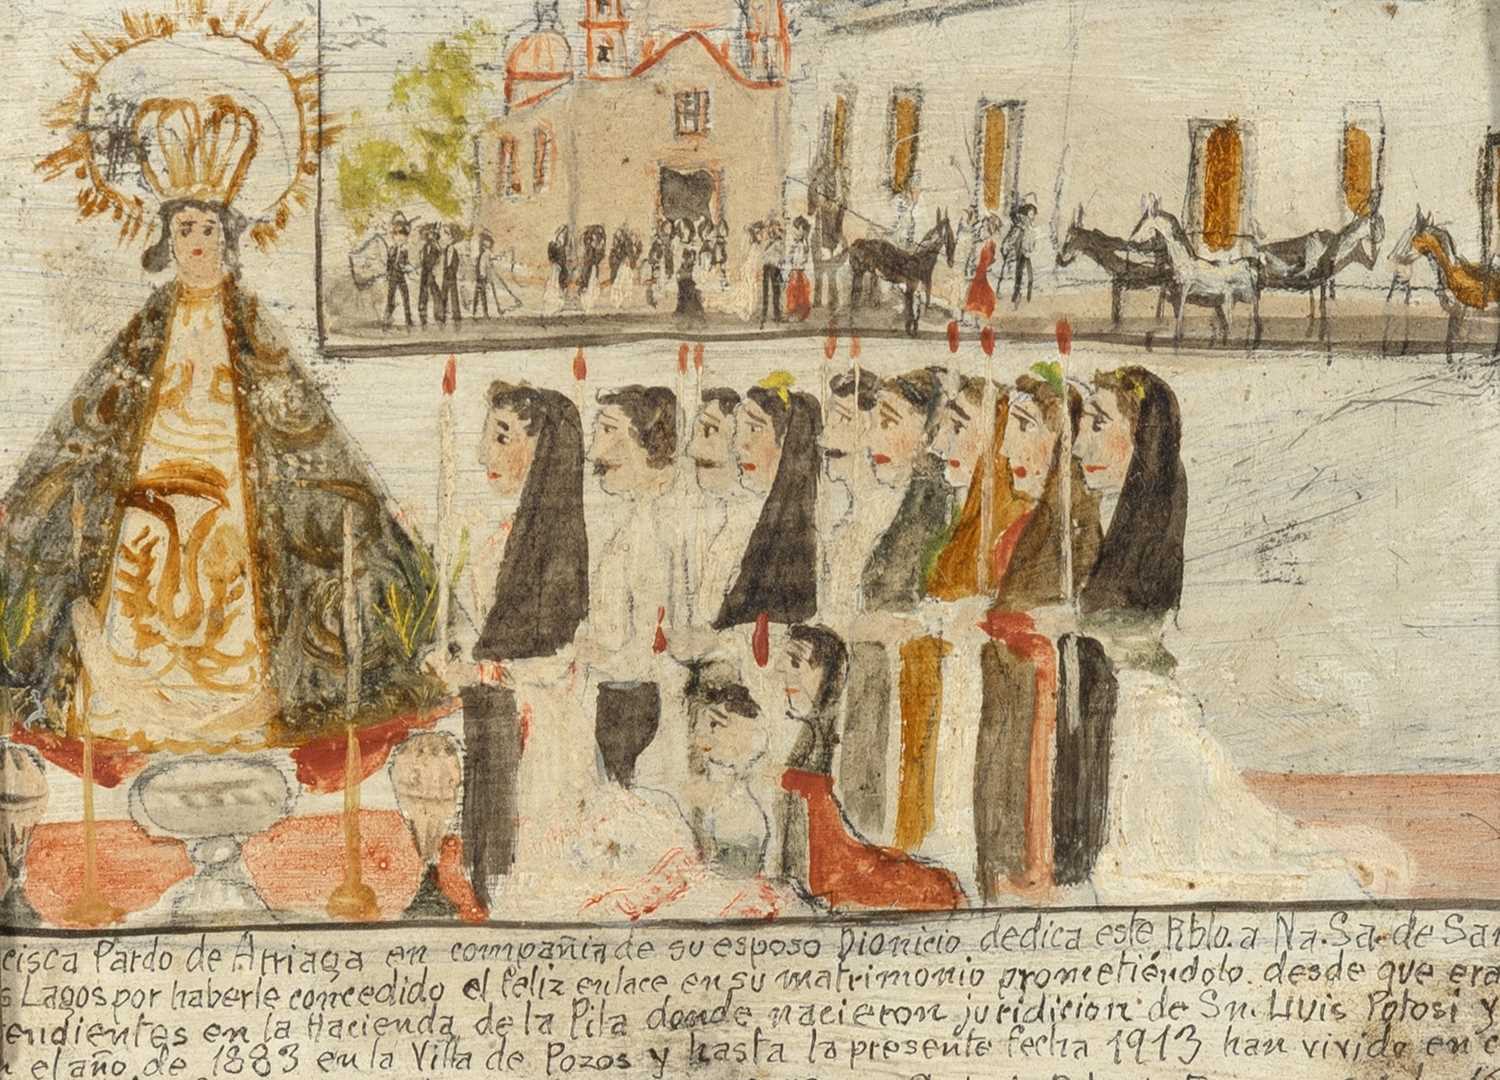 cisca Pardo de Arriaga en compañia de su esposo Dionicio dedica este Rblo. a Na. Sa. de San
s Lagos por haberle concedido el feliz enlace en su matrimonio prometiéndolo. desde que era
endientes en la Hacienda de la Pila donde nacieron juridicion de Sn. Luis Potosi y
n el año de 1883 en la Villa de Pozos y hasta la presente fecha 1913 han vivido en c